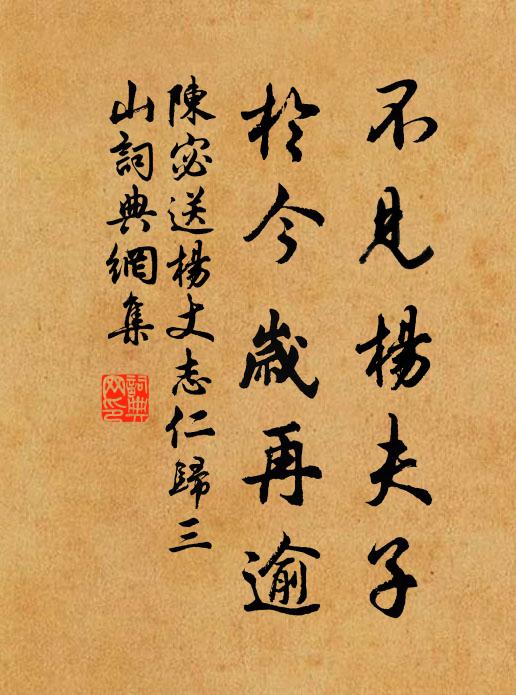 不見楊夫子
於今歲再逾
陳宓送楊丈志仁歸三
山詞典網集
詞典
网印